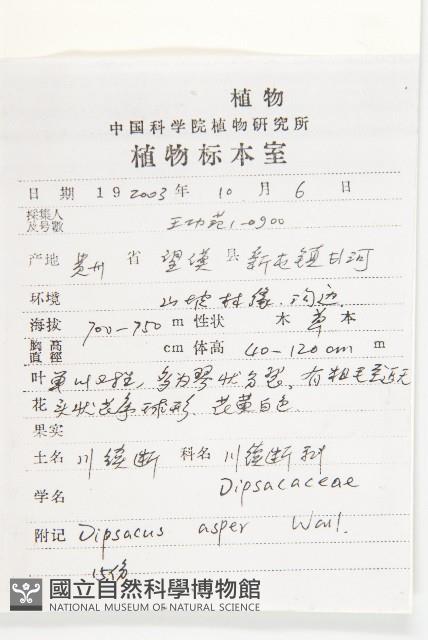 植物
中国科学院植物研究所
植物标本室
日期 19 2003 年 10 月 6 日
採集人及号數 王功芳1-0900
产地 贵州 省 望谟 县 新屯镇
环境 山坡林缘、沟边.
海拔 700-750 m 性状 木 草 本
胸高直徑 cm 体高 40-120 cm m
叶 有粗毛至近无
花 头状花序球形、花黄白色.
果实
土名 川续断 科名 川续断科
学名 Dipsacaceae
附记 Dipsacus asper Wall.
15份
國立自然科學博物館
NATIONAL MUSEUM OF NATURAL SCIENCE